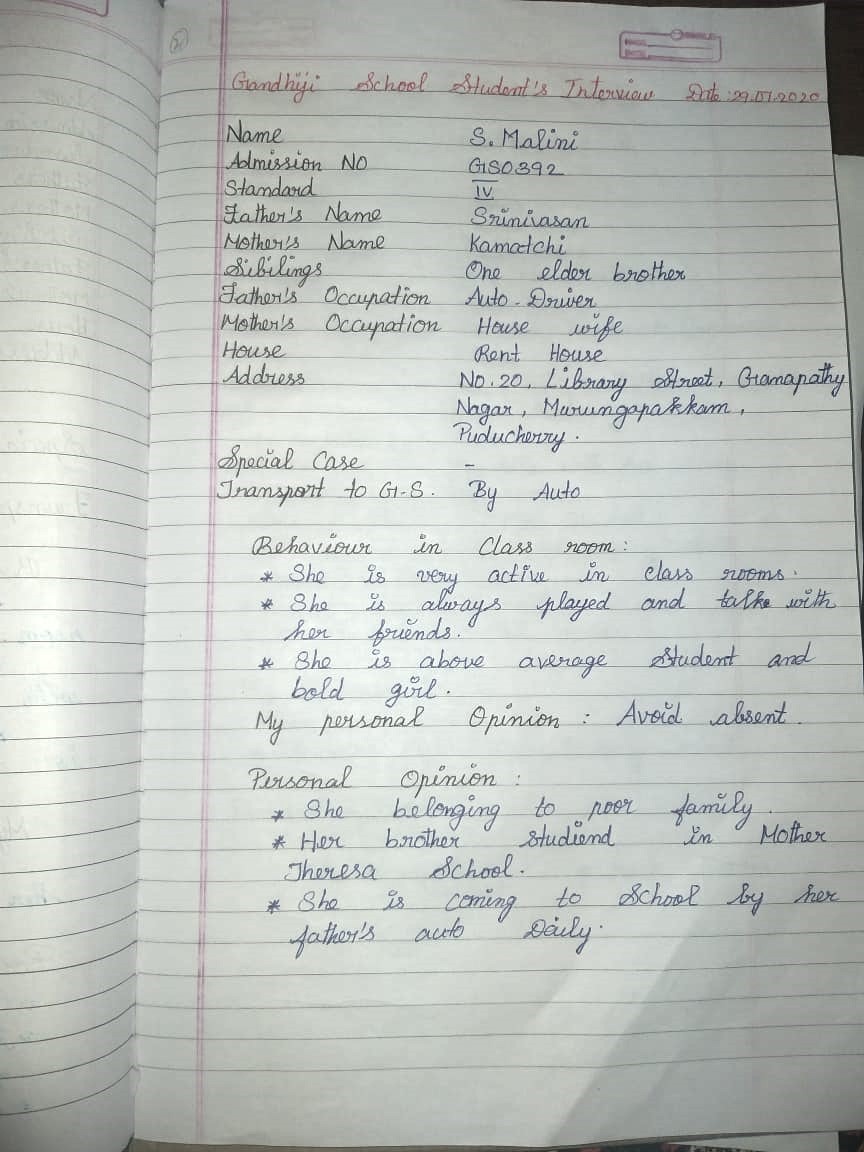 Gandhiji School Student's Interview Date : 29.07.2020
Name S. Malini
Admission No GIS0392
Standard IV
Father's Name Srinivasan
Mother's Name Kamatchi
Sibilings One elder brother
Father's Occupation Auto-Driver
Mother's Occupation House wife
House Rent House
Address No.20, Library Street, Ganapathy
Nagar, Murungapakkam,
Puducherry.
Special Case -
Transport to G.S. By Auto
Behaviour in Class room :
* She is very active in class rooms.
* She is always played and talks with
her friends.
* She is above average student and
bold girl.
My personal Opinion : Avoid absent.
Personal Opinion :
* She belonging to poor family.
* Her brother studiend in Mother
Theresa School.
* She is coming to School by her
father's auto Daily.